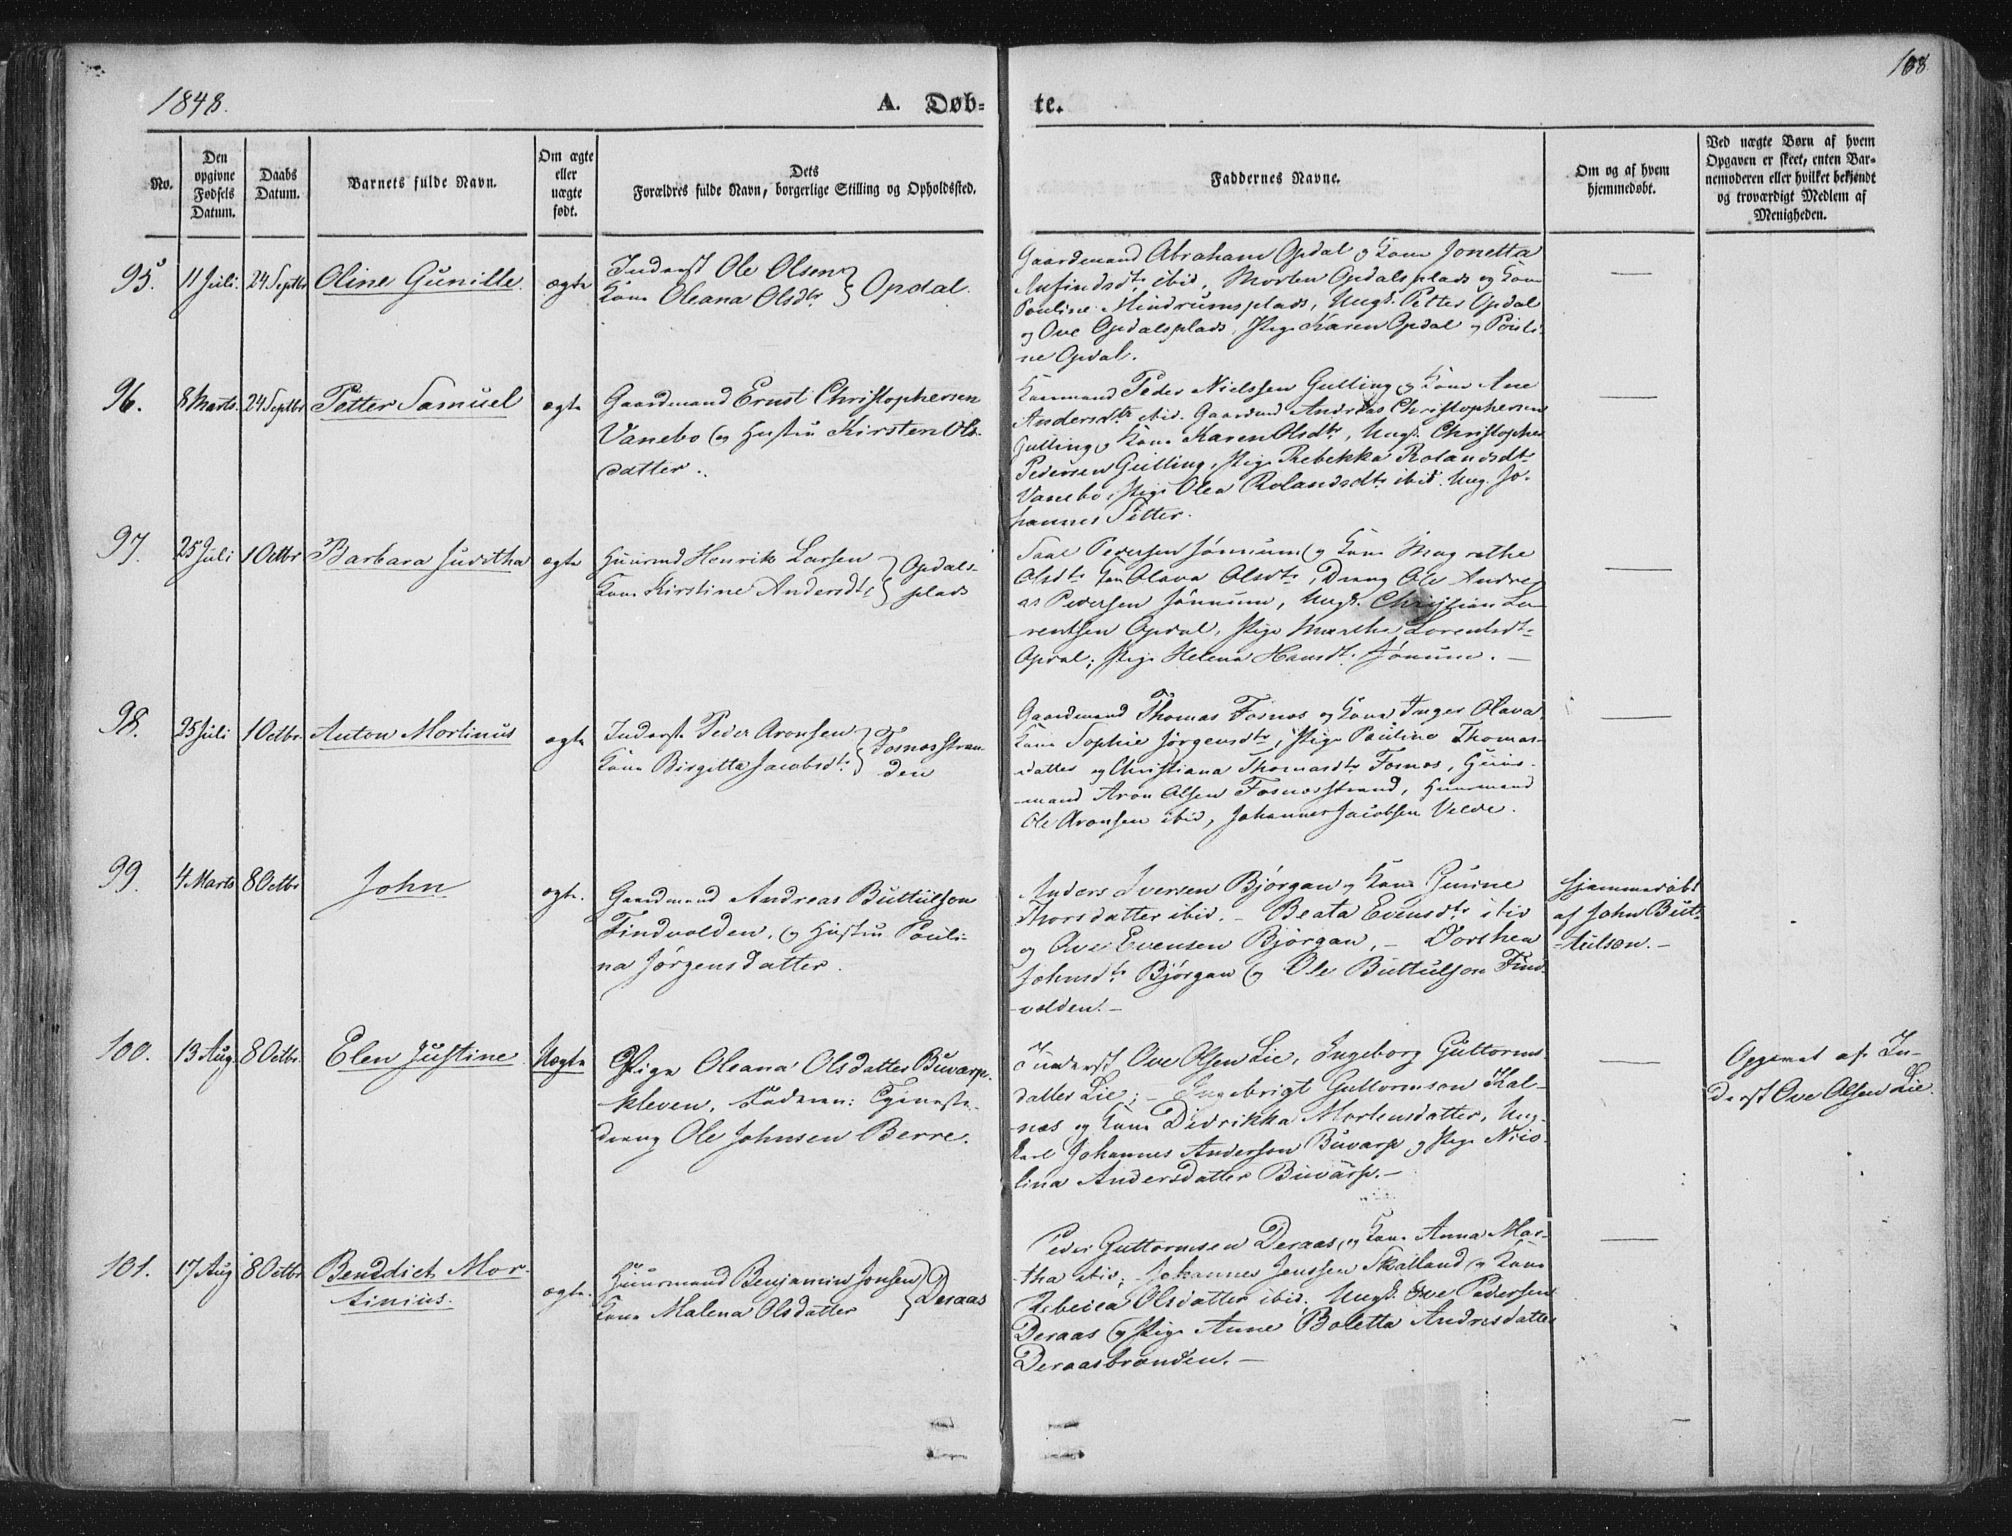 1848.
A. Døb-
te.
168
No.
Den opgivne Fødsels Datum.
Daabs Datum.
Barnets fulde Navn.
Om ægte eller uægte født.
Dets
Forældres fulde Navn, borgerlige Stilling og Opholdssted.
Faddernes Navne.
Om og af hvem hjemmedøbt.
Ved uægte Børn af hvem Opgaven er skeet, enten Barnemoderen eller hvilket bekjendt og troværdigt Medlem af Menigheden.
95. 11 Juli. 24 Septbr Oline Gunille. ægte
Inderst Ole Olsen
Kone Oleana Olsdtr } Opdal.
Gaardmand Abraham Opdal og Kone Jonetta
Anfindsdtr ibid, Morten Opdalsplads og Kone
Pauline Mindrumsplads, Ungk. Petter Opdal
og Ove Opdalsplads, Pige Karen Opdal og Pauli-
ne Opdal.
96. 8 Marts. 24 Septbr Petter Samuel ægte
Gaardmand Ernst Christophersen
Vanebo og Hustru Kirsten Ols-
datter.
Kaarmand Peder Nielssen Gulling og Kone Ane
Andersdtr ibid. Gaardmd Andreas Christophersen
Gulling og Kone Karen Olsdtr, Ungk. Christopher
Pedersen Gulling, Pige Rebekka Rolandsdtr
Vanebo, Pige Olea Rolandsdtr ibid. Ung. Jo-
hannes Petter.
97. 25 Juli 1 Octbr Barbara Juditha ægte
Huusmd Henrik Larsen
Kone Kirstine Andersdtr } Opdals-
plads
Pedersen Jønnum og Kone Magrethe
Olsdtr Olava Olsdtr, Dreng Ole Andre-
as Pedersen Jønnum, Ungk. Christian Lo-
rentsen Opdal, Pige Marthe Lorentsdtr
Opdal, Pige Helena Hansdtr Jønnum. —
98. 25 Juli 1 Octbr. Anton Martinus ægte
Inderst Peder Aronsen
Kone Birgitta Jacobsdtr } Fosnæsstran-
den
Gaardmand Thomas Fosnæs og Kone Inger Olava,
Kone Sophie Jørgensdtr, Pige Pauline Thomas-
datter og Christiana Thomasdtr Fosnæs, Huus-
mand Aron Olsen Fosnæsstrand, Huusmand
Ole Aronsen ibid, Johannes Jacobsen Velde.
99. 4 Marts 8 Octbr John ægte.
Gaardmand Andreas Buttulson
Findvolden, og Hustru Pauli-
na Jørgensdatter.
Anders Iversen Bjørgan og Kone Gurine
Thorsdatter ibid. — Beata Evensdtr ibid
og Ove Evensen Bjørgan, — Dorthea
Johnsdtr Bjørgan og Ole Buttulson Find-
volden. —
Hjemmedøbt
af John But-
tulson. —
100. 13 Aug. 8 Octbr. Elen Justine. Uægte
Pige Oleana Olsdatter Buvarp-
kleven. Faderen: Tjeneste-
dreng Ole Johnsen Berre.
Inderst Ove Olsen Lie, Ingeborg Guttorms-
datter Lie; — Ingebrigt Guttormson Kal-
næs og Kone Didrikka Mortensdatter, Ung-
karl Johannes Anderson Buvarp og Pige Nico-
lina Andersdatter Buvarp. —
Opgivet af In-
derst Ove Olsen Lie.
101. 17 Aug 8 Octbr Benedict Mor-
tinius. ægte.
Huusmand Benjamin Jonsen
Kone Malena Olsdatter } Deraas
Peder Guttormsen Deraas, og Kone Anna Mar-
tha ibid; Johannes Jenssen Skalland og Kone
Rebecca Olsdatter ibid. Ungk. Ove Pedersen
Deraas og Pige Anne Boletta Andresdatter
Deraasbrønden. —